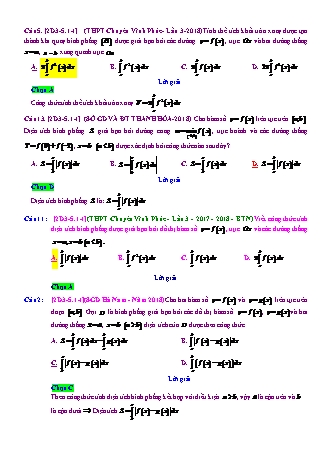 Câu 5: [2D3-5.1-4] (THPT Chuyên Vĩnh Phúc - Lần 3-2018) Tính thể tích khối tròn xoay được tạo
thành khi quay hình phẳng (H) được giới hạn bởi các đường y = f(x), trục Ox và hai đường thẳng
x = a, x = b xung quanh trục Ox.
A. π∫f²(x)dx B. ∫f²(x)dx C. π∫f(x)dx D. 2π∫f²(x)dx
Lời giải
Chọn A
Công thức tính thể tích khối tròn xoay V = π∫f²(x)dx
[2D3-5.1-4] (SỞ GD VÀ ĐT THANH HÓA-2018) Cho hàm số y = f(x) liên tục trên [a;b].
Diện tích hình phẳng S giới hạn bởi đường cong trục hoành và các đường thẳng
x = b (a<b) được xác định bởi công thức nào sau đây?
A. S = |∫f(x)dx| C. S = ∫f(x)dx D. S = ∫|f(x)|dx
Lời giải
Chọn D
Diện tích hình phẳng S là: S = ∫|f(x)|dx
Câu 11: [2D3-5.1-4] (THPT Chuyên Vĩnh Phúc - Lần 3 - 2017 - 2018 - BTN) Viết công thức tính
diện tích hình phẳng được giới hạn bởi đồ thị hàm số y = f(x), trục Ox và các đường thẳng
x = a, x = b (a<b).
A. ∫|f(x)|dx B. ∫f²(x)dx C. ∫f(x)dx D. π∫f(x)dx
Lời giải
Chọn A
Câu 2: [2D3-5.1-4] (SGD Hà Nam - Năm 2018) Cho hàm số y = f(x) và y = g(x) liên tục trên
đoạn [a;b]. Gọi D là hình phẳng giới hạn bởi các đồ thị hàm số y = f(x), y = g(x) và hai
đường thẳng x = a, x = b diện tích của D được theo công thức
A. S = ∫f(x)dx - ∫g(x)dx B. ∫|f(x) - g(x)|dx
C. ∫|f(x) - g(x)|dx D. ∫(f(x) - g(x))dx
Lời giải
Chọn C
Theo công thức tính diện tích hình phẳng kết hợp với điều kiện a>b, vậy a là cận trên và b
là cận dưới ⇒ Diện tích S = ∫|f(x) - g(x)|dx